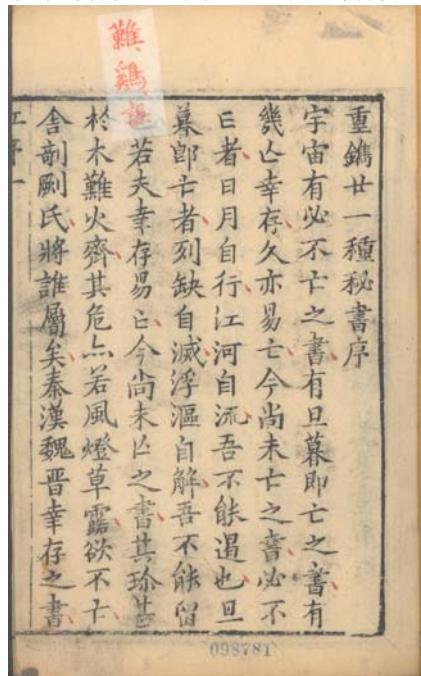 重鐫廿一種秘書序
宇宙有必不亡之書有旦暮即亡之書有
幾亡幸存久亦易亡今尚未亡之書必不
亡者日月自行江河自流吾不能遏也旦
暮郎亡者列缺自滅浮漚自解吾不能留
若夫幸存易亡今尚未亡之書其珍甚
於木難火齊其危亦若風燈草露欲不亡
舍剞劂氏將誰屬矣秦漢魏晋幸存之書
098781